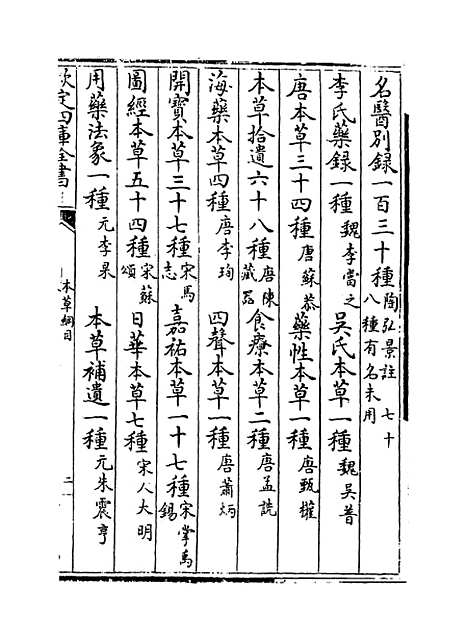 名醫別録一百三十種陶弘景註七十八種有名未用
李氏藥録一種魏李當之 吳氏本草一種魏吳普
唐本草三十四種唐蘇恭 藥性本草一種唐甄權
本草拾遺六十八種唐陳藏器 食療本草二種唐孟詵
海藥本草四種唐李珣 四聲本草一種唐蕭炳
開寶本草三十七種宋馬志 嘉祐本草一十七種宋掌禹錫
圖經本草五十四種宋蘇頌 日華本草七種宋人大明
用藥法象一種元李杲 本草補遺一種元朱震亨
欽定四庫全書
本草綱目
二